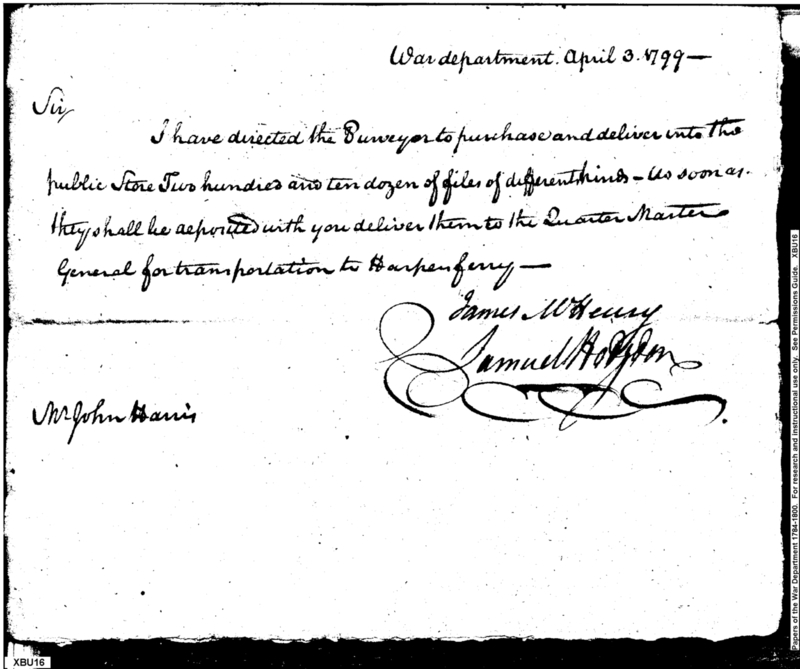 War department. April 3. 1799—
Sir
I have directed the Purveyor to purchase and deliver into the
public Store Two hundred and ten dozen of files of different kinds – As soon as
they shall be deposited with you deliver them to the Quarter Master
General for transportation to Harpersferry—
James McHenry
Samuel Hodgdon
Mr John Harris
XBU16
Papers of the War Department 1784-1800. For research and instructional use only. See Permissions Guide. XBU16